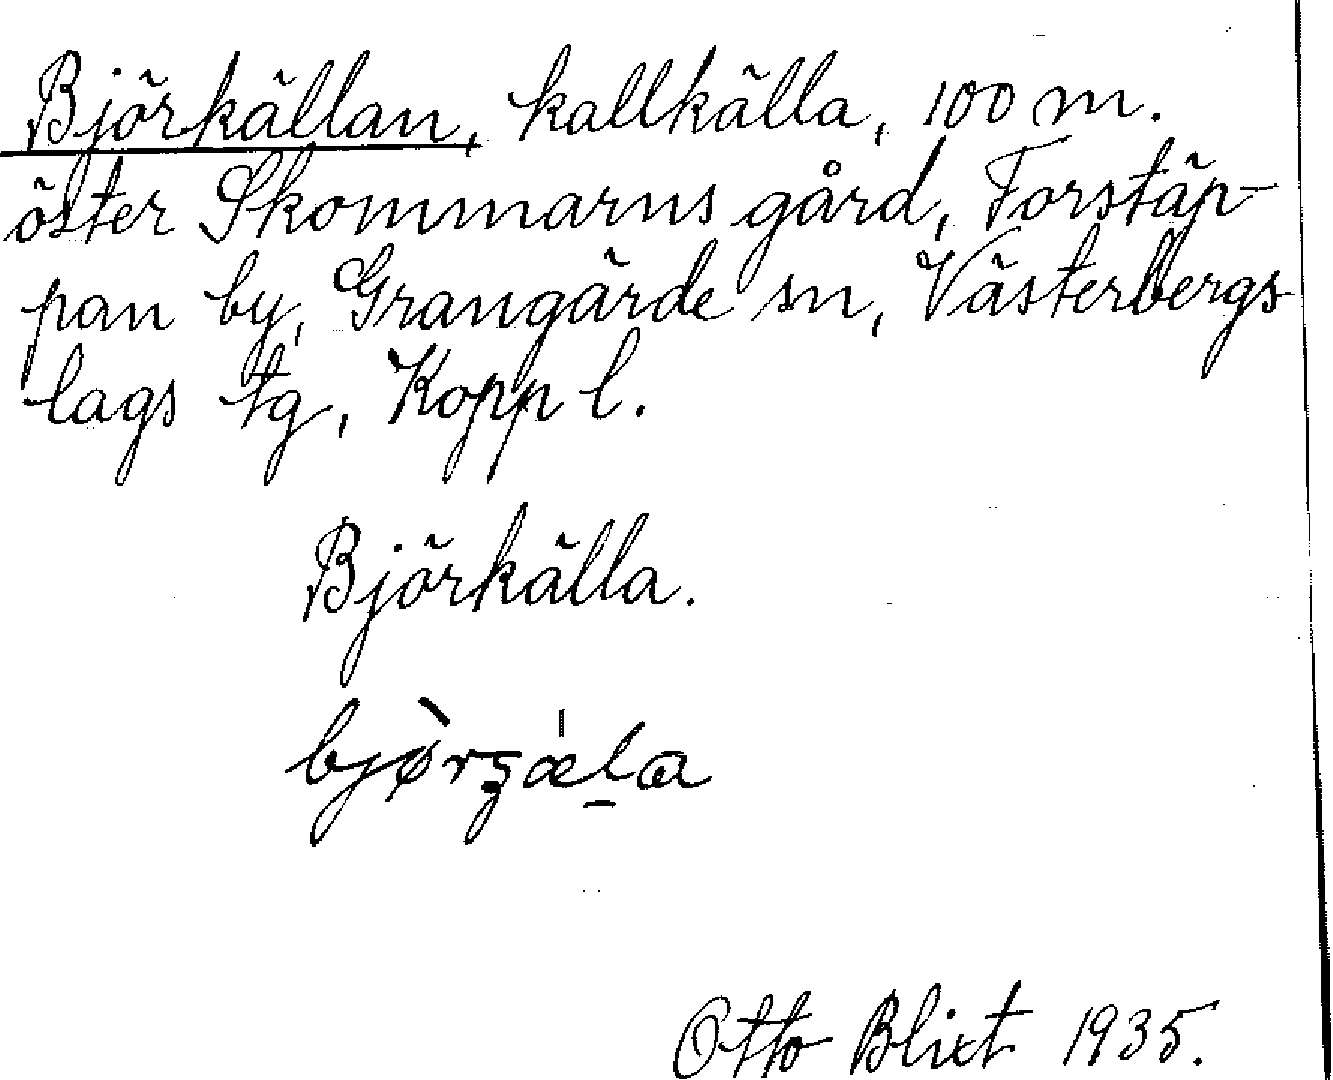 Björkällan, kallkälla, 100 m.
öster Skommarns gård, Forstäp-
pan by, Grangärde sn, Västerbergs
lags tg, Kopp l.
Björkälla.
Otto Blixt 1935.